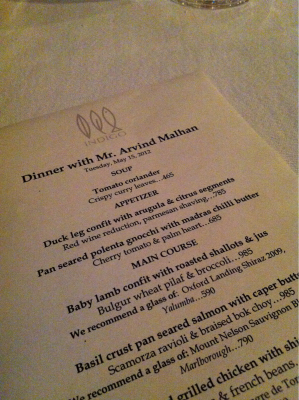 INDIGO
Dinner with Mr. Arvind Malhan
Tuesday, May 15, 2012
SOUP
Tomato coriander
Crispy curry leaves...465
APPETIZER
Duck leg confit with arugula & citrus segments
Red wine reduction, parmesan shaving...785
Pan seared polenta gnocchi with madras chilli butter
Cherry tomato & palm heart...685
MAIN COURSE
Baby lamb confit with roasted shallots & jus
Bulgur wheat pilaf & broccoli...985
We recommend a glass of: Oxford Landing Shiraz 2009,
Yalumba...590
Basil crust pan seared salmon with caper butte
Scamorza ravioli & braised bok choy...985
We recommend a glass of: Mount Nelson Sauvignon B
Marlborough...790
d grilled chicken with shi
& french beans
erre de Tor